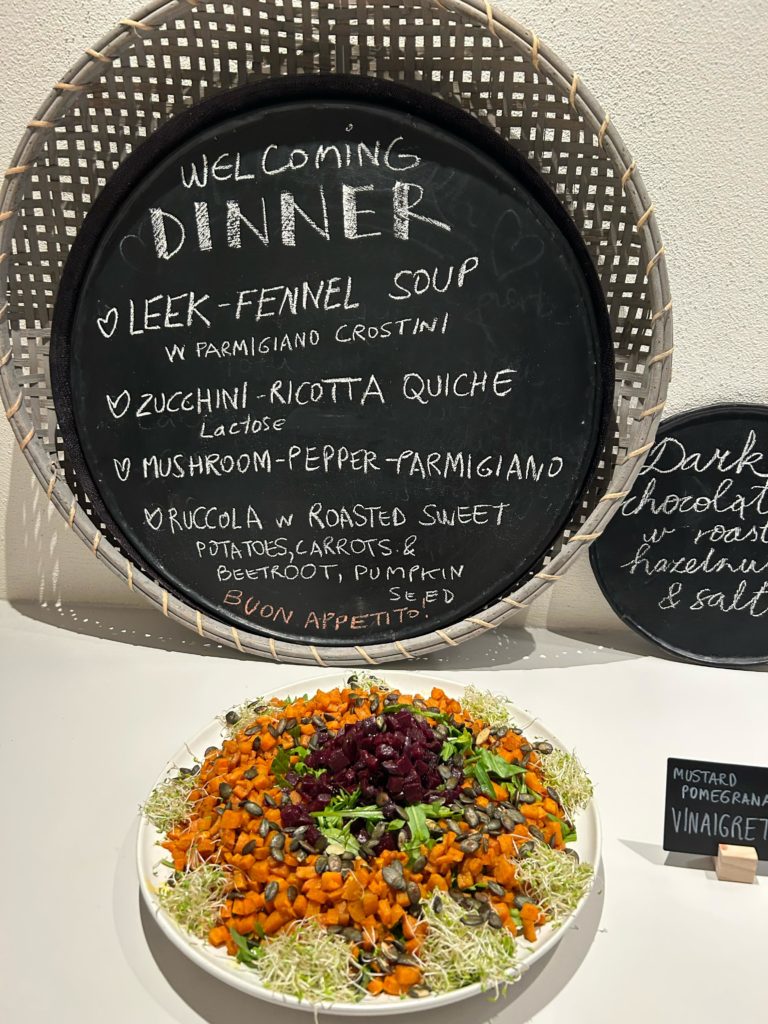 WELCOMING
DINNER
LEEK-FENNEL SOUP
W PARMIGIANO CROSTINI
ZUCCHINI-RICOTTA QUICHE
Lactose
MUSHROOM-PEPPER-PARMIGIANO
RUCCOLA W ROASTED SWEET
POTATOES, CARROTS &
BEETROOT, PUMPKIN
SEED
BUON APPETITO!
Dark
chocolat
w roast
hazelnu
& salt
MUSTARD
POMEGRANA
VINAIGRET